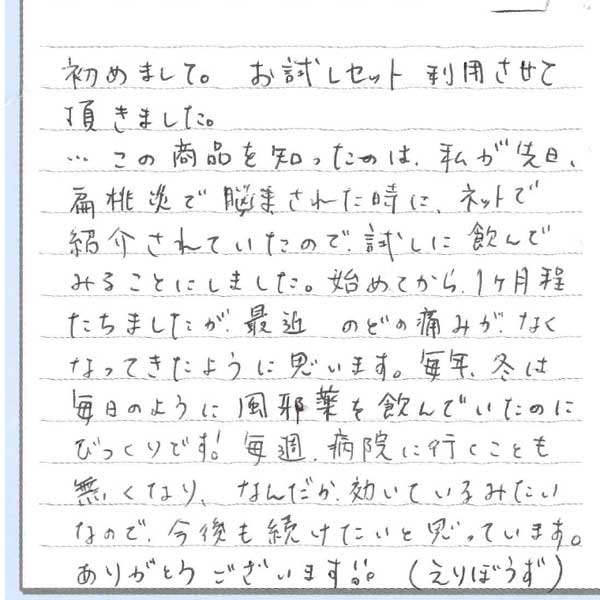 初めまして。 お試しセット 利用させて
頂きました。
… この商品を知ったのは、私が先日、
扁桃炎で悩まされた時に、ネットで
紹介されていたので、試しに飲んで
みることにしました。始めてから、1ヶ月程
たちましたが、最近 のどの痛みが、なく
なってきたように思います。毎年、冬は
毎日のように風邪薬を飲んでいたのに
びっくりです! 毎週、病院に行くことも
無くなり、なんだか、効いているみたい
なので、今後も続けたいと思っています。
ありがとうございます!!。 (えりぼうず)